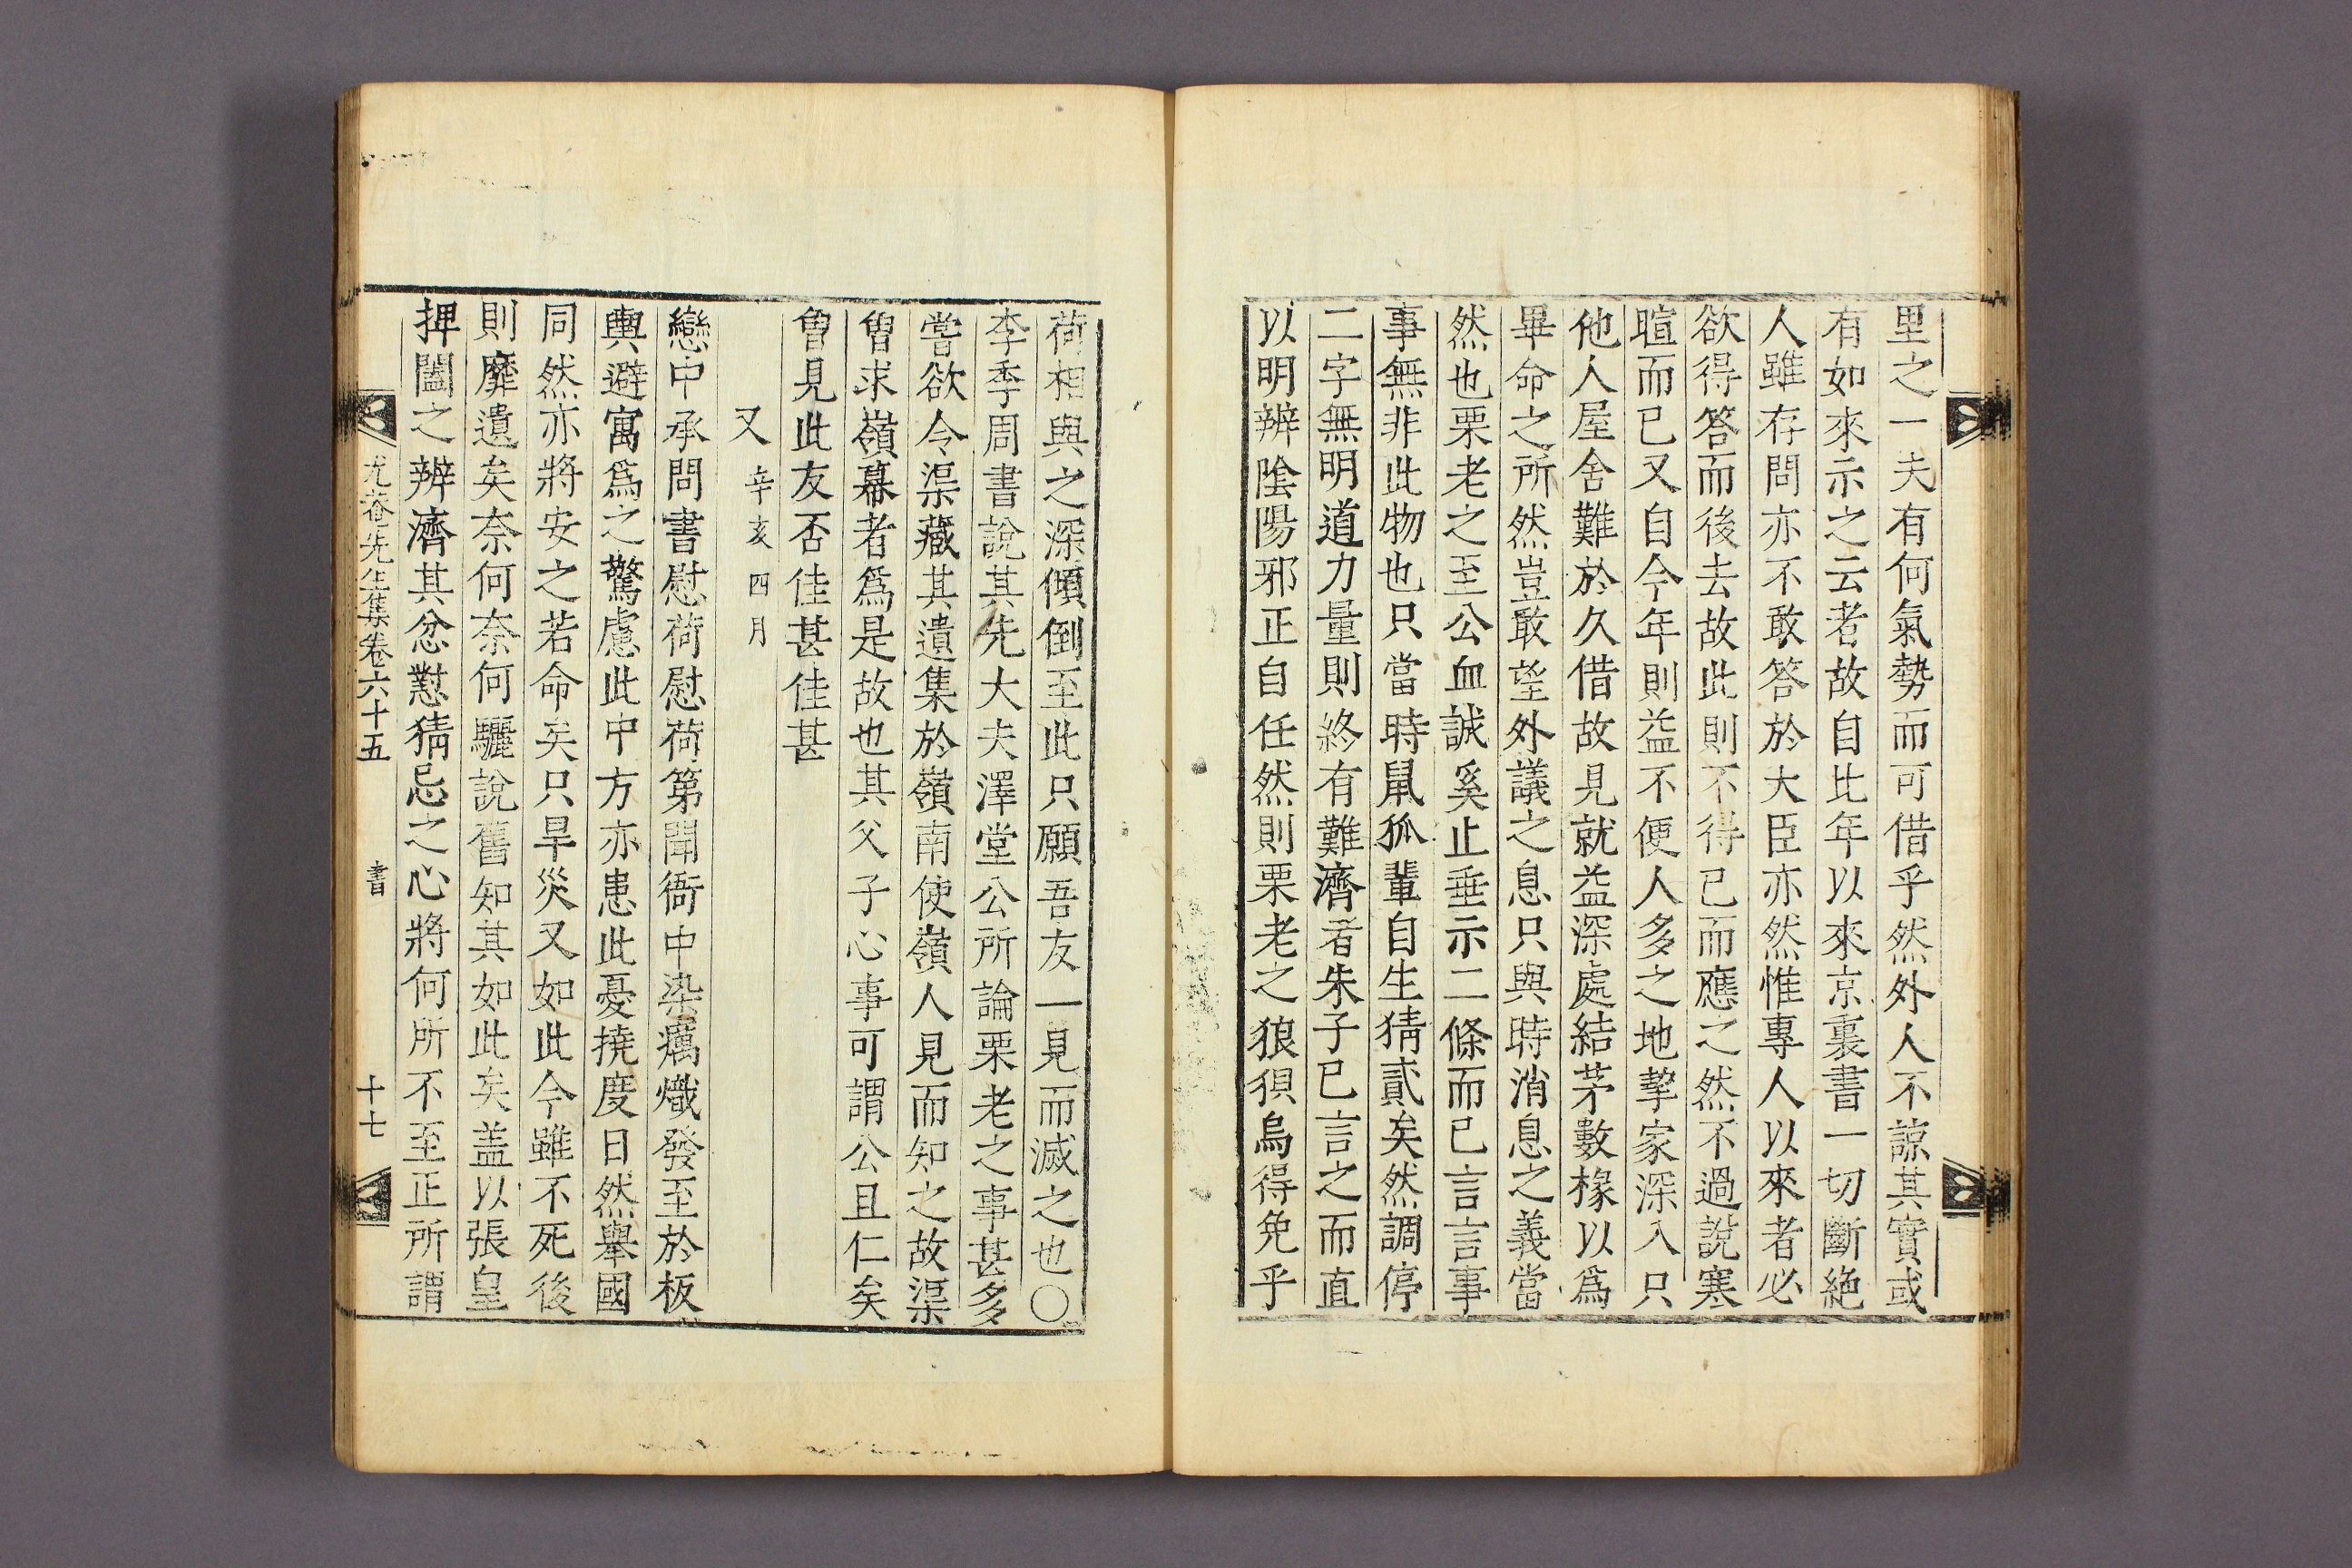 里之一夫有何氣勢而可借乎然外人不諒其實或
有如來示之云者故自比年以來京裏書一切斷絶
人雖存問亦不敢答於大臣亦然惟專人以來者必
欲得答而後去故此則不得已而應之然不過說寒
暄而已又自今年則益不便人多之地挈家深入只
他人屋舍難於久借故見就益深處結茅數椽以爲
畢命之所然豈敢望外議之息只與時消息之義當
然也栗老之至公血誠奚止垂示二條而已言言事
事無非此物也只當時鼠狐輩自生猜貳矣然調停
二字無明道力量則終有難濟者朱子已言之而直
以明辨陰陽邪正自任然則栗老之狼狽烏得免乎
荷相與之深傾倒至此只願吾友一見而滅之也○
李季周書說其先大夫澤堂公所論栗老之事甚多
嘗欲令渠藏其遺集於嶺南使嶺人見而知之故渠
曾求嶺幕者爲是故也其父子心事可謂公且仁矣
曾見此友否佳甚佳甚
又 辛亥四月
戀中承問書慰荷慰荷第聞衙中染癘熾發至於板
輿避寓爲之驚慮此中方亦患此憂撓度日然擧國
同然亦將安之若命矣只旱災又如此今雖不死後
則靡遺矣奈何奈何驪說舊知其如此矣盖以張皇
捭闔之辨濟其忿懟猜忌之心將何所不至正所謂
尤菴先生集卷六十五 書 十七